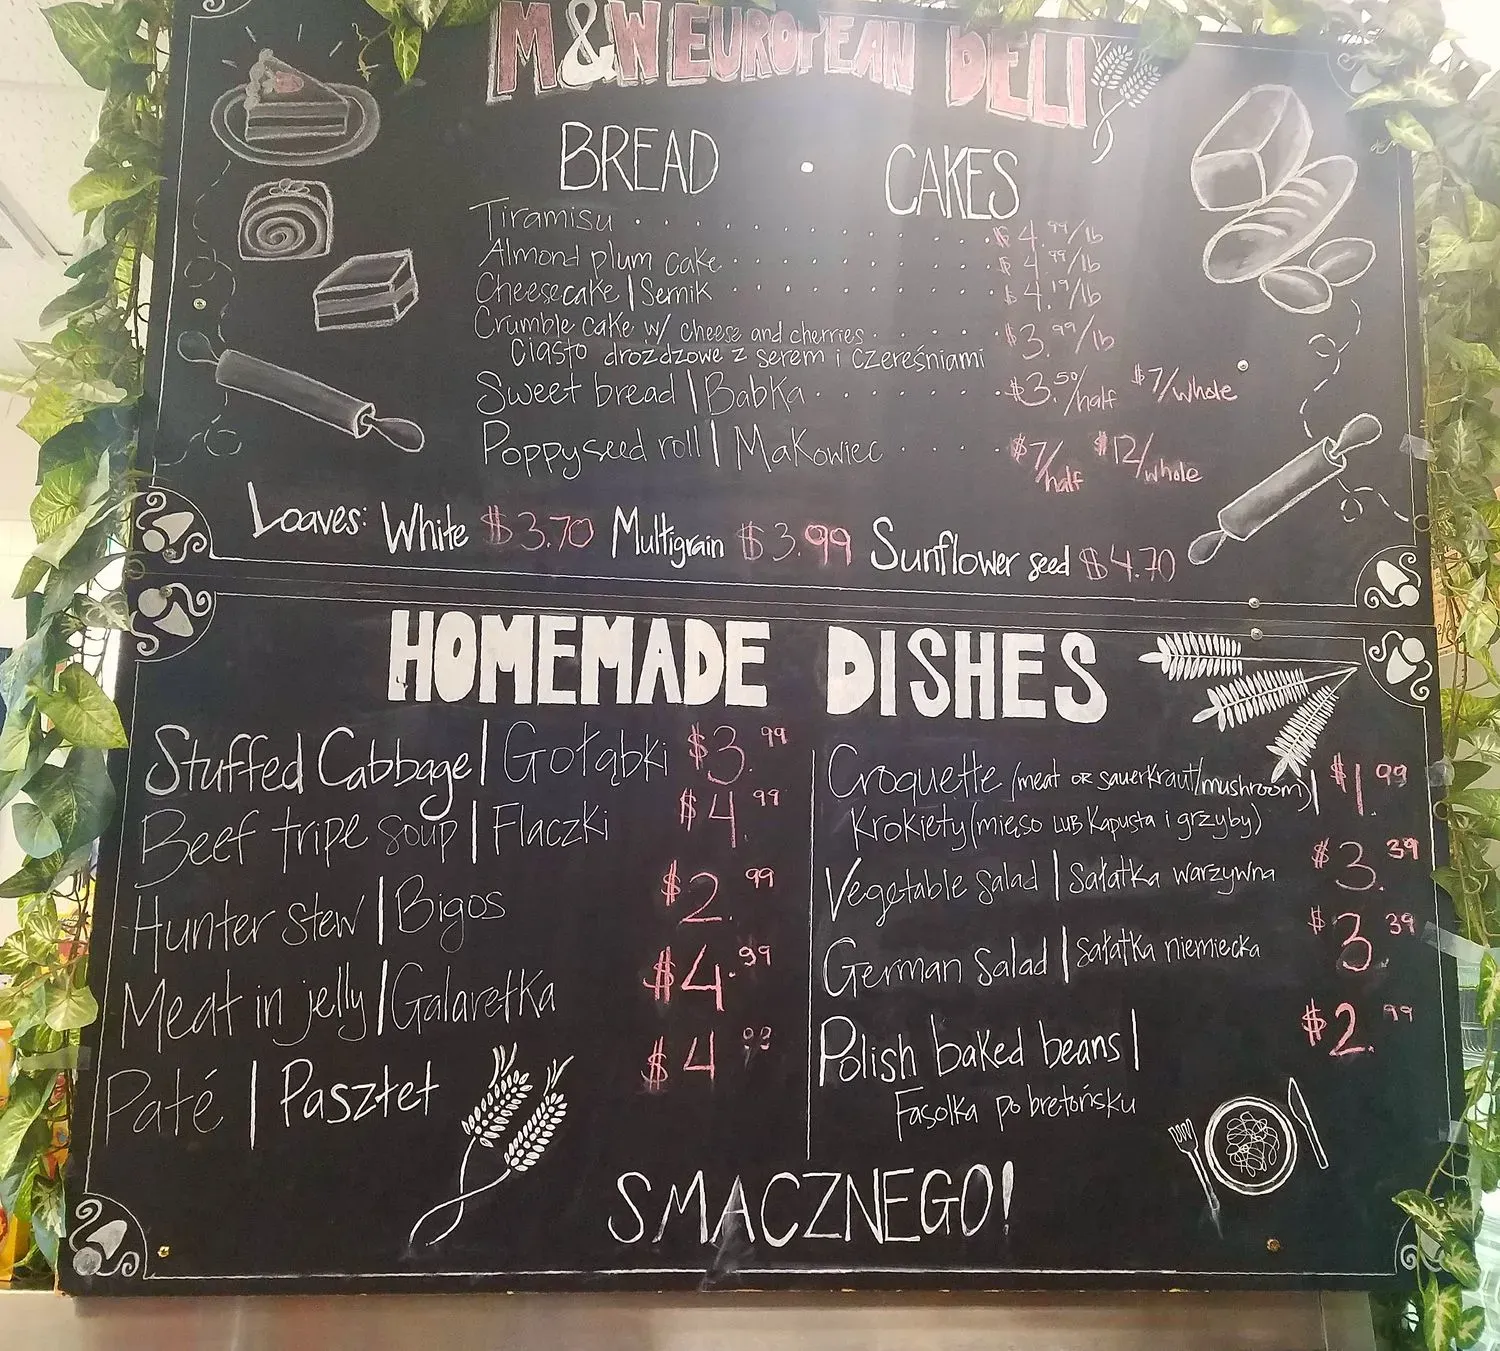 M&W EUROPEAN DELI
BREAD · CAKES
Tiramisu . . . . . . . . . . . . $4.99/lb
Almond plum cake . . . . . . . . . . $4.99/lb
Cheesecake | Sernik . . . . . . . . . . $4.19/lb
Crumble cake w/ cheese and cherries . . . . . $3.99/lb
Ciasto drozdzowe z serem i czereśniami
Sweet bread | Babka . . . . . . . $3.50/half $7/whole
Poppyseed roll | Makowiec . . . . $7/half $12/whole
Loaves: White $3.70 Multigrain $3.99 Sunflower seed $4.70
HOMEMADE DISHES
Stuffed Cabbage | Gołąbki $3.99
Beef tripe soup | Flaczki $4.99
Hunter stew | Bigos $2.99
Meat in jelly | Galaretka $4.99
Paté | Pasztet $4.99
Croquette (meat or sauerkraut/mushroom) | $1.99
Krokiety (mięso LUB kapusta i grzyby)
Vegetable salad | Sałatka warzywna $3.39
German salad | Sałatka niemiecka $3.39
Polish baked beans | $2.99
Fasolka po bretońsku
SMACZNEGO!